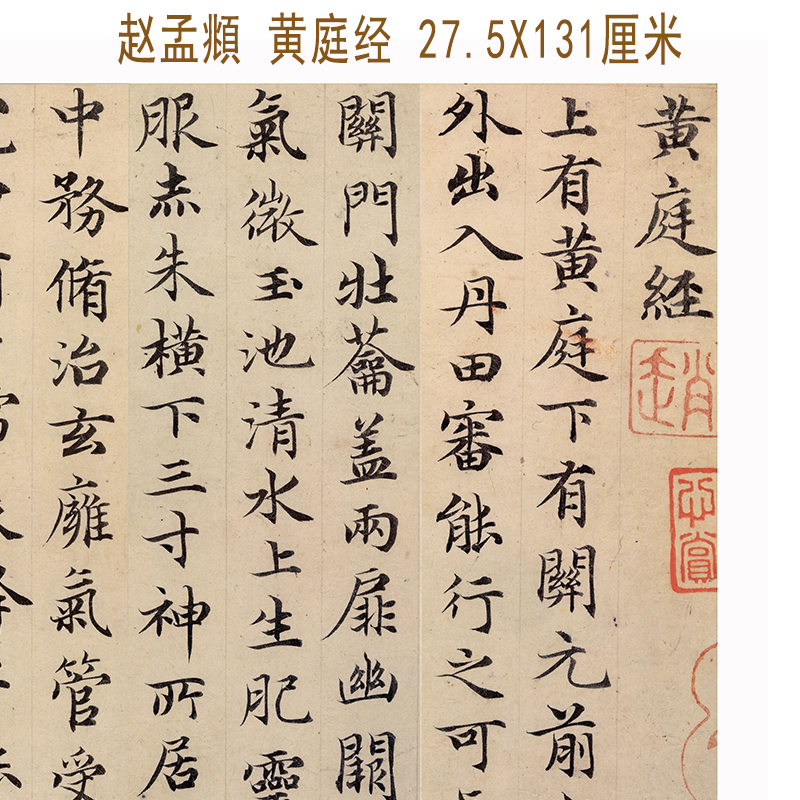 赵孟頫 黄庭经 27.5X131厘米
黄庭經
上有黄庭下有關元前
外出入丹田審能行之可
關門壯蘥蓋兩扉幽闕
氣微玉池清水上生肥靈
服赤朱横下三寸神所居
中務脩治玄廱氣管受
趙
心賞